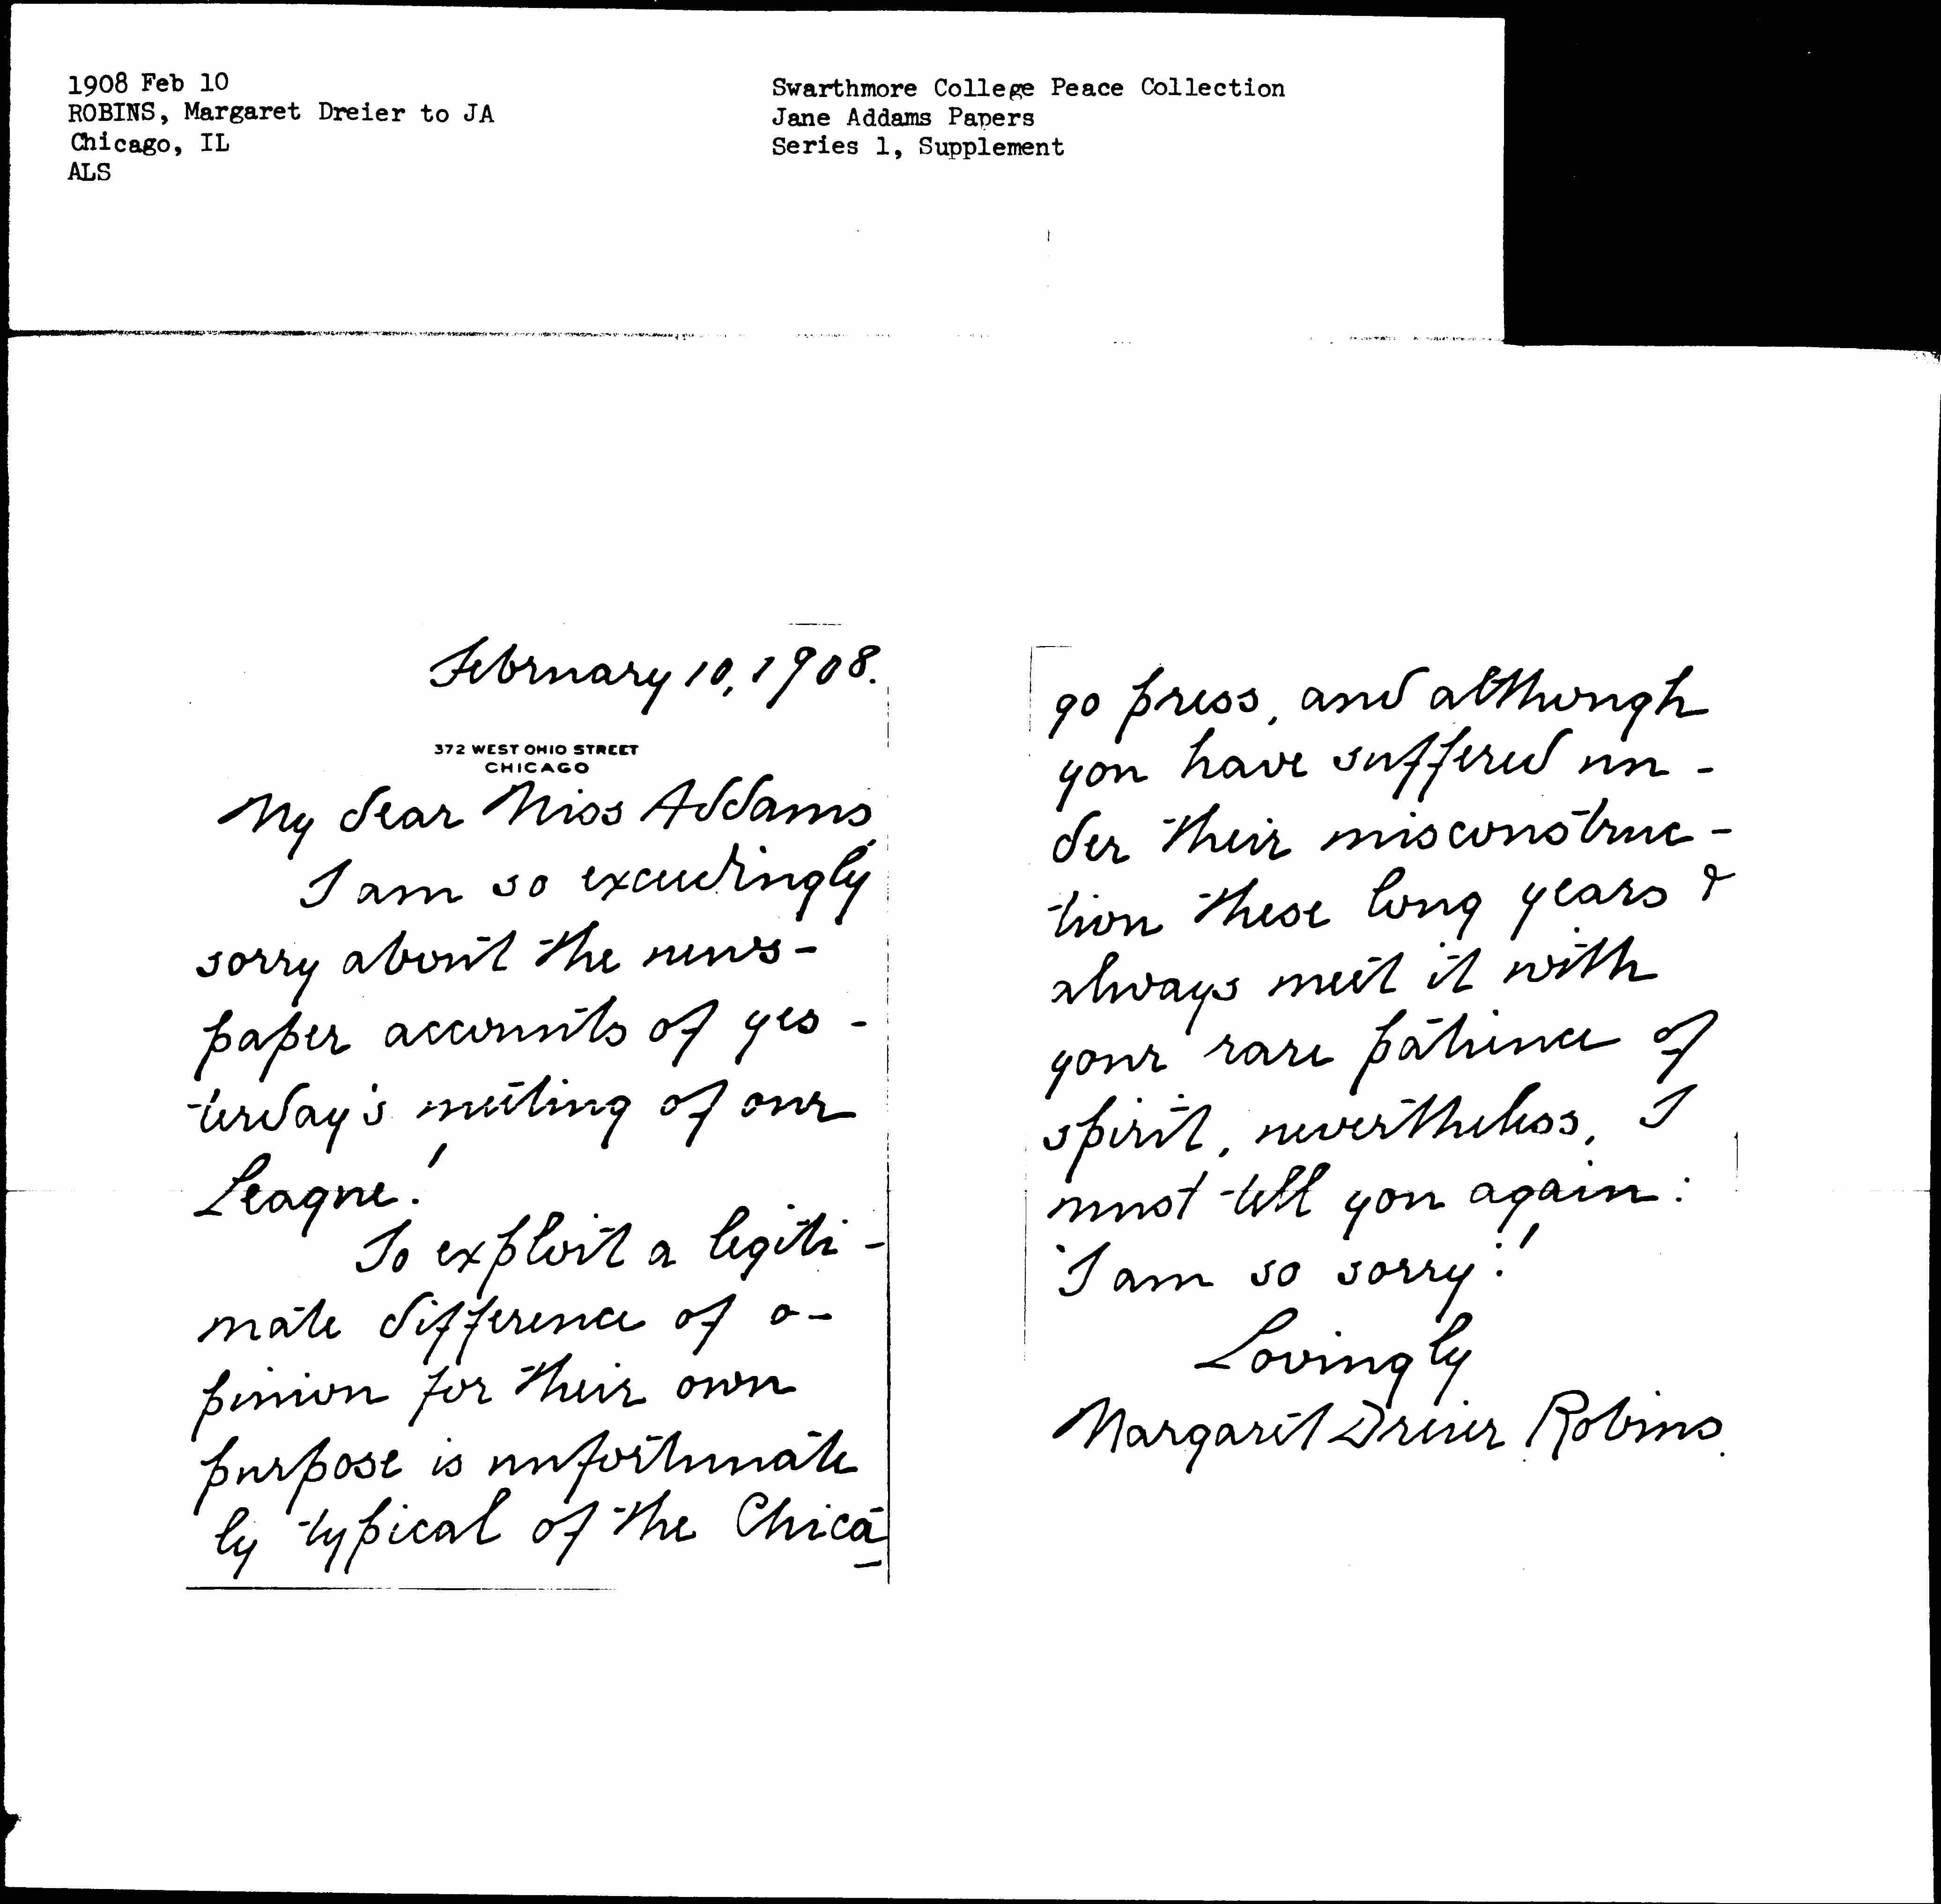 1908 Feb 10
ROBINS, Margaret Dreier to JA
Chicago, IL
ALS
Swarthmore College Peace Collection
Jane Addams Papers
Series 1, Supplement
February 10, 1908.
372 WEST OHIO STREET
CHICAGO
My dear Miss Addams,
I am so exceedingly
sorry about the news-
paper accounts of yes-
terday's meeting of our
League!
To exploit a legiti-
mate difference of o-
pinion for their own
purpose is unfortunate
ly typical of the Chica-
go press, and although
you have suffered un-
der their misconstruc-
tion these long years &
always meet it with
your rare patience of
spirit, nevertheless, I
must tell you again:
I am so sorry!
Lovingly
Margaret Dreier Robins.